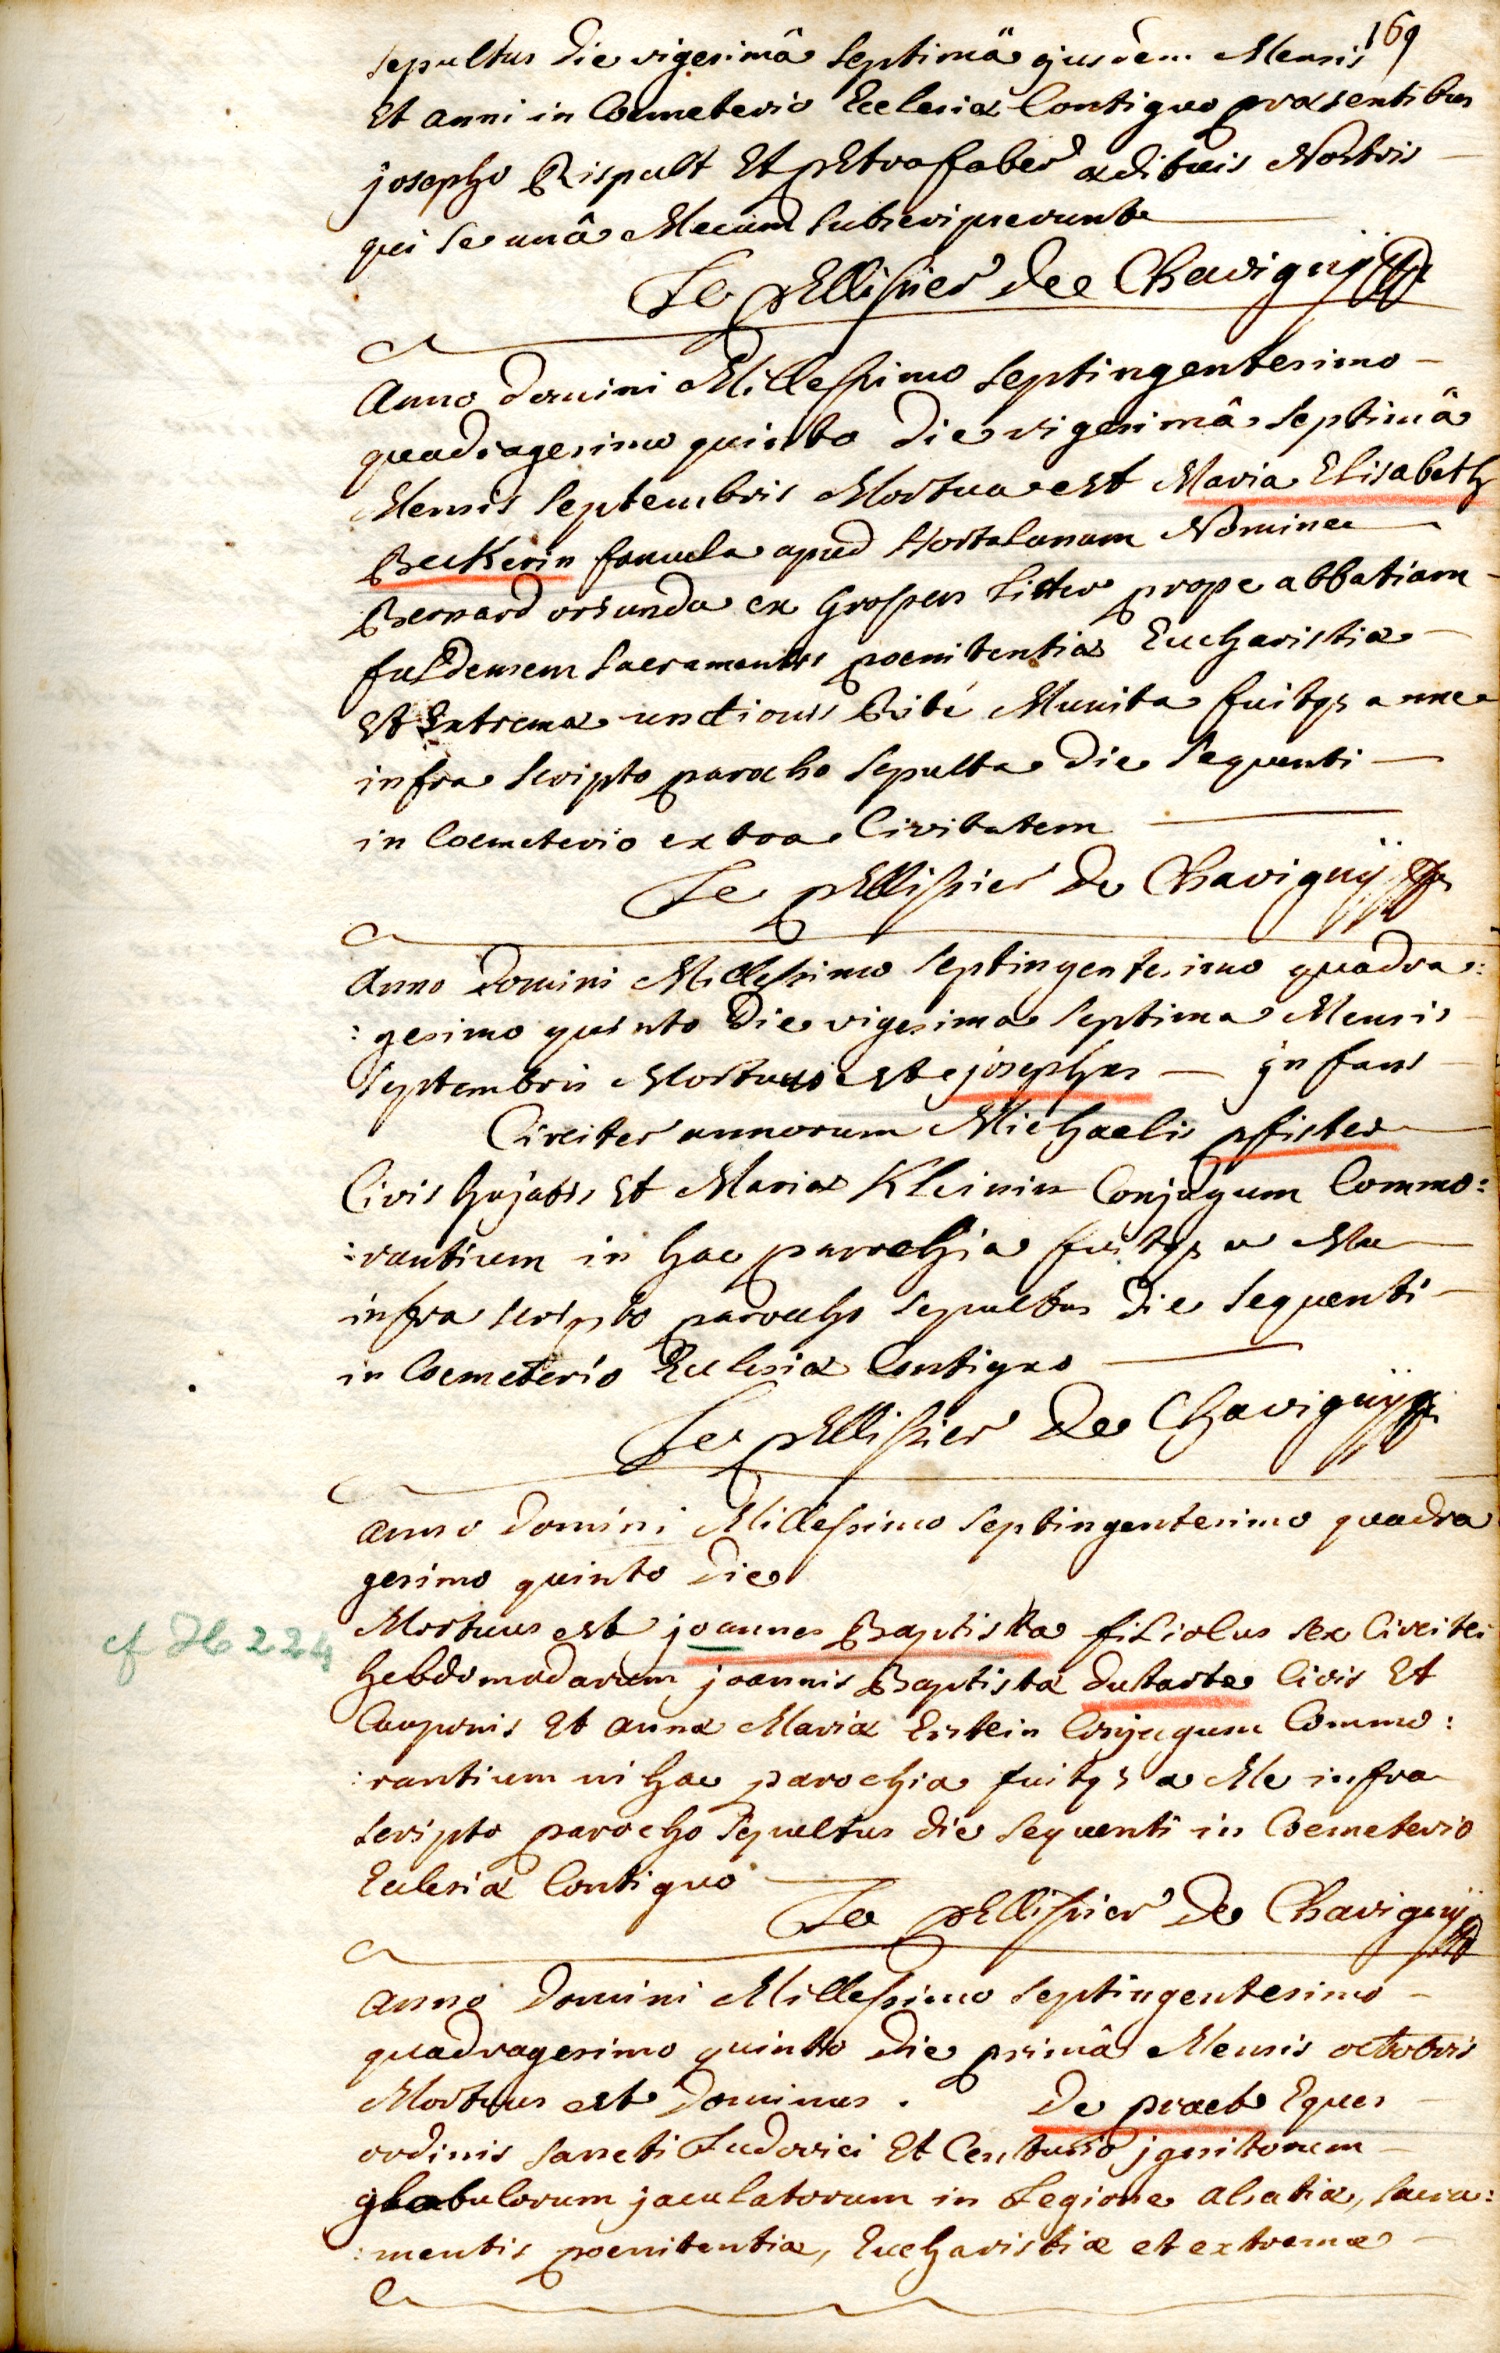 169
sepultus die vigesimâ septimâ ejusdem Mensis
Et anni in Coemeterio Ecclesiæ Contiguo præsentibus
josepho Rispult Et pEtro faber ædituis Nostris
qui se unâ Mecum subscripserunt
Le pEllissier de Chavignÿ
Anno Domini Millessimo septingentesimo
quadragesimo quinto Die vigesimâ septimâ
Mensis septembris Mortua est Maria Elisabeth
Beckerin famula apud Hortulanum Nomine
Bernard oriunda ex Grossen Litter prope abbatiam
fuldensem sacramentis poenitentiæ Eucharistiæ
Et Extremæ unctionis Rité Munita fuitqs a me
infra scripto parocho sepulta Die sequenti
in Coemeterio extra Civitatem
Le pEllissier De Chavignÿ
Anno Domini Millessimo septingentesimo quadra:
:gesimo quinto Die vigesima septima Mensis
septembris Mortuus est josephus — jnfans
Circiter annorum Michaelis pfister
Civis hujatis Et Mariæ Kleinin Conjugum Commo:
:rantium in hac parochia fuitqs a Me
infra scripto parocho sepultus Die sequenti
in Coemeterio Ecclesiæ Contiguo
Le pEllissier De Chavignÿ
Anno Domini Millessimo septingentesimo quadra
gesimo quinto Die
Mortuus est joannes Baptista filiolus sex Circiter
cf H 224
hebdomadarum joannis Baptistæ dutarte Civis Et
Cauponis Et annæ Mariæ Erstein Conjugum Commo:
:rantium in hac parochia fuitqs a Me infra
scripto parocho sepultus die sequenti in Coemeterio
Ecclesiæ Contiguo
Le pEllissier De Chavignÿ
Anno Domini Millessimo septingentesimo
quadragesimo quinto Die primâ Mensis octobris
Mortuus est Dominus . De praet Eques
ordinis sancti Ludovici Et Centurio jgnitorum
globulorum jaculatorum in Legione alsatiæ, sacra:
:mentis poenitentiæ, Eucharistiæ et extremæ